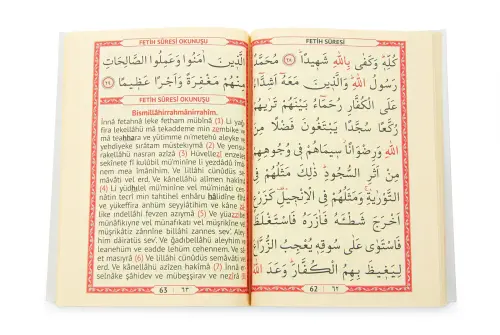 FETİH SÛRESİ
كُلِّهِ وَكَفٰى بِاللّٰهِ شَهِيدًا ﴿٢٨﴾ مُحَمَّدٌ
رَسُولُ اللّٰهِ وَالَّذِينَ مَعَهُ اَشِدَّاءُ
عَلَى الْكُفَّارِ رُحَمَاءُ بَيْنَهُمْ تَرٰيهُمْ
رُكَّعًا سُجَّدًا يَبْتَغُونَ فَضْلًا مِنَ
اللّٰهِ وَرِضْوَانًا سِيمَاهُمْ فِى وُجُوهِهِمْ
مِنْ اَثَرِ السُّجُودِ ذٰلِكَ مَثَلُهُمْ فِى
التَّوْرٰيةِ وَمَثَلُهُمْ فِى الْاِنْجِيلِ كَزَرْعٍ
اَخْرَجَ شَطْـَٔهُ فَاٰزَرَهُ فَاسْتَغْلَظَ
فَاسْتَوٰى عَلٰى سُوقِهِ يُعْجِبُ الزُّرَّاعَ
لِيَغِيظَ بِهِمُ الْكُفَّارَ وَعَدَ اللّٰهُ
62 ٦٢
FETİH SÛRESİ OKUNUŞU
الَّذِينَ اٰمَنُوا وَعَمِلُوا الصَّالِحَاتِ
مِنْهُمْ مَغْفِرَةً وَاَجْرًا عَظِيمًا ﴿٢٩﴾
FETİH SÛRESİ OKUNUŞU
Bismillâhirrahmânirrahîm.
İnnâ fetahnâ leke fetham mübînâ (1) Li yağ
fira lekellâhü mâ tekaddeme min zembike ve
mâ teahhara ve yütimme ni'metehû aleyke
yehdiyeke sırâtam müstekıymâ (2) Ve yensu
rakellâhü nasran azîzâ (3) Hüvellezî enzeles
sekînete fî kulûbil mü'minîne li yezdâdû îmâ
nem mea îmânihim. Ve lillâhi cünûdüs se
mâvâti vel erd. Ve kânellâhü alîmen hakîmâ
(4) Li yüdhılel mü'minîne vel mü'minâti cen
nâtin tecrî min tahtihel enhâru hâlidîne fîhâ
ve yükeffira anhüm seyyiâtihim ve kâne zâ
like indellâhi fevzen azıymâ (5) Ve yüazzibe
münâfikıyne vel münafikati vel müşrikîne vel
müşrikâtiz zânnîne billâhi zannes sev'. Aley
him dâiratüs sev'. Ve ğadıbellâhü aleyhim ve
leanehüm ve eadde lehüm cehennem. Ve sâ
et masıyrâ (6) Ve lillâhi cünûdüs semâvâti vel
erd. Ve kânellâhü azîzen hakîmâ (7) İnnâ er
selnâke şâhidev ve mübeşşirav ve nezîrâ (8)
63 ٦٣